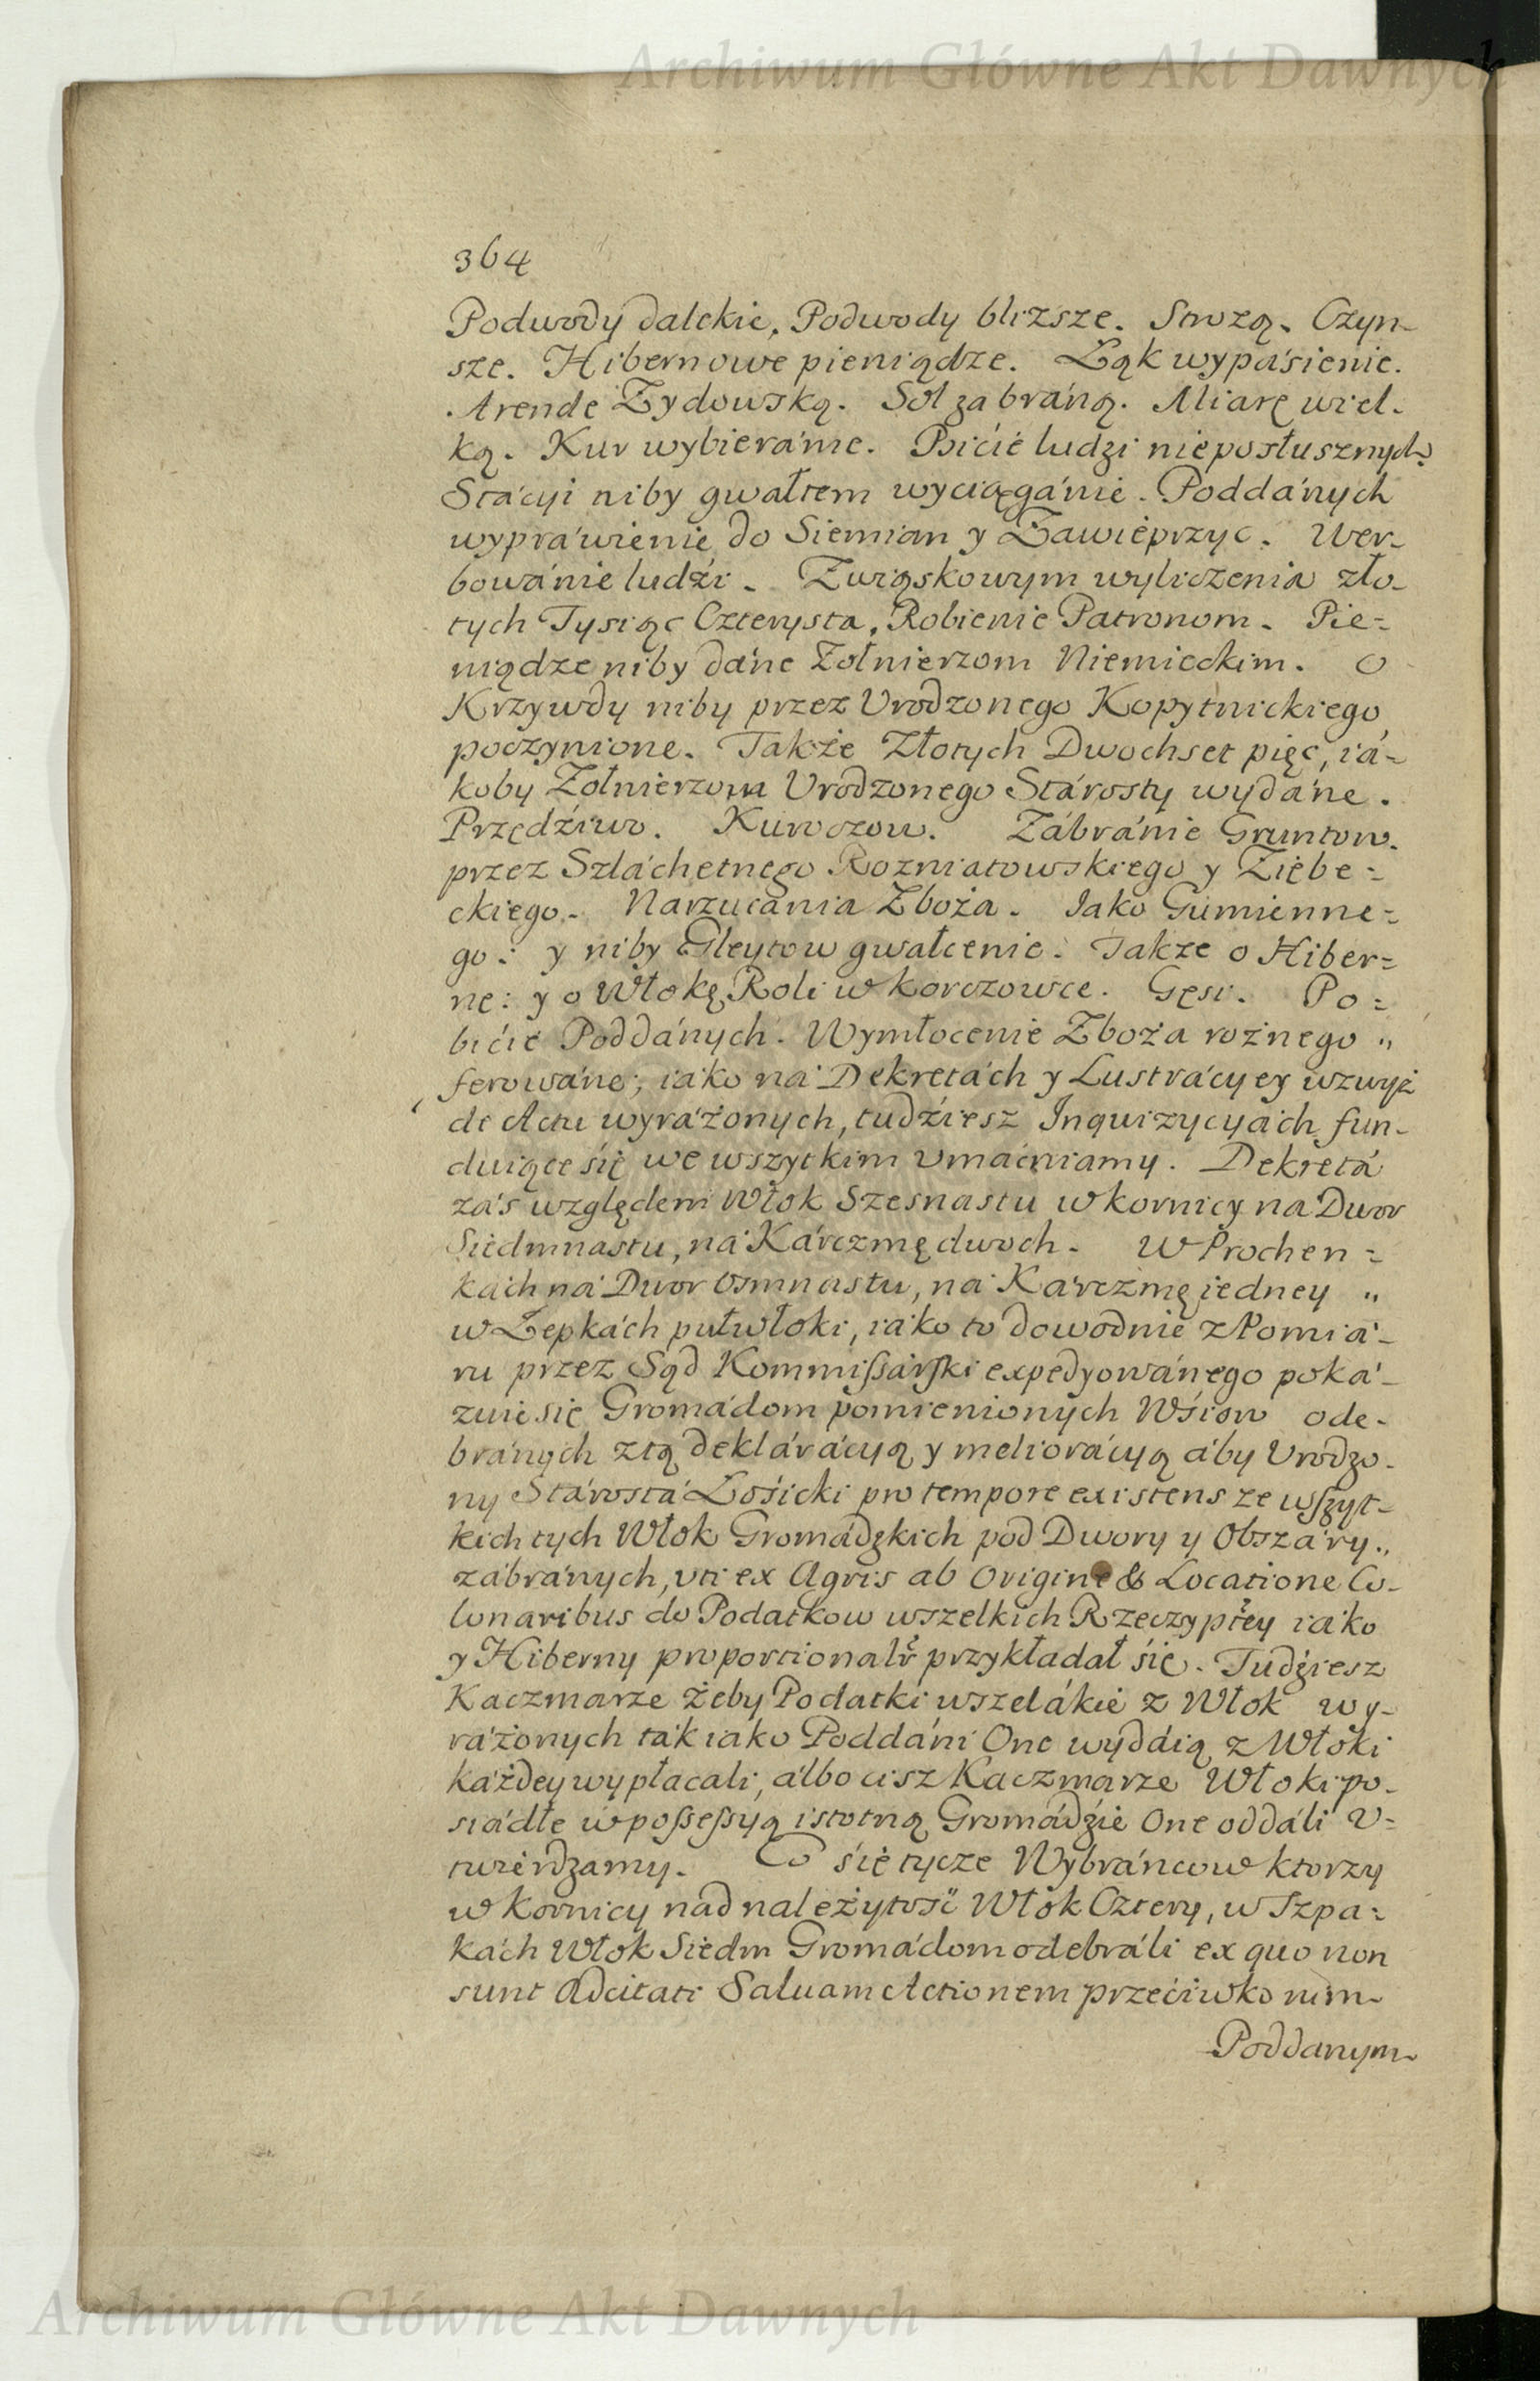 Archiwum Główne Akt Dawnych
364
Podwody dalekie, Podwody bliższe. Strożą. Czyn-
sze. Hibernowe pieniądze. Łąk wypásienie.
Arende Zydowską. Sol zabráną. Miarę wiel-
ką. Kur wybieránie. Bićie ludzi nieposłusznych
Stácyi niby gwałtem wyciągánie. Poddánych
wypráwienie do Siemian y Zawieprzyc. Wer-
bowánie ludźi. Związkowym wyliczenia zło-
tych Tysiąc Czterysta, Robienie Patronom. Pie=
niądze niby dáne Zołnierzom Niemieckim. O
Krzywdy niby przez Vrodzonego Kopytnickiego
poczynione. Także Złotych Dwochset pięc, iá-
koby Zołnierzom Vrodzonego Stárosty wydáne.
Przędźiwo. Kuroczow. Zábránie Gruntow.
przez Szláchetnego Rozniatowskiego y Ziębe=
ckiego. Narzucania Zboża. Jako Gumienne=
go: y niby Gleytow gwałcenie. Także o Hiber=
nę: y o Włokę Roli w Korczowce. Gęsi. Po=
bićie Poddánych. Wymłocenie Zboża rożnego „
ferowáne, iáko ná Dekretách y Lustrácyey wzwyż
de Actu wyráżonych, tudźiesz Inquizycyách fun-
duiące się we wszytkim vmácniamy. Dekretá
záś względem Włok Szesnastu w Kornicy na Dwor
Siedmnastu, ná Kárczmę dwoch. W Prochen=
kách ná Dwor Osmnastu, ná Kárczmę iedney „
w Łepkách pułwłoki, iáko to dowodnie z Pomiá-
ru przez Sąd Kommissárski expedyowánego poká-
zuie się Gromádom pomienionych Wśiow ode-
bránych ztą deklárácyą y meliorácyą áby Vrodzo-
ny Stárostá Łośicki pro tempore existens ze wszyt-
kich tych Włok Gromádzkich pod Dwory y Obszáry „
zábránych, vti ex Agris ab Origine & Locatione Co-
lonaribus do Podatkow wszelkich Rzeczyptey iáko
y Hiberny proportionalr przykładał się. Tudźiesz
Kaczmarze żeby Podatki wszelákie z Włok wy-
ráżonych ták iáko Poddáni One wydáią z Włoki
káżdey wypłacali, álbo cisz Kaczmarze Włoki po-
siádłe w possessyą istotną Gromádźie One oddáli V=
twierdzamy. Co się tycze Wybráncow ktorzy
w Kornicy nad należytość Włok Cztery, w Szpa=
kách Włok Siedm Gromádom odebráli ex quo non
sunt Adcitati Saluam Actionem przećiwko nim
Poddanym
Archiwum Główne Akt Dawnych